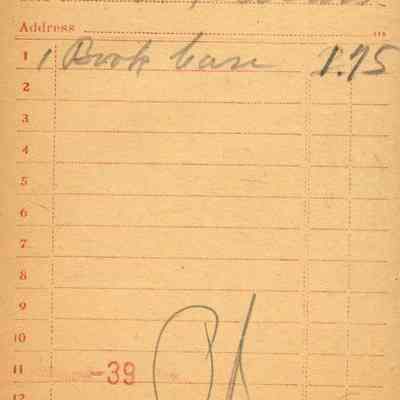 Address
1 1 Book case 1.75
2
3
4
5
6
7
8
9
10
11 -39
12